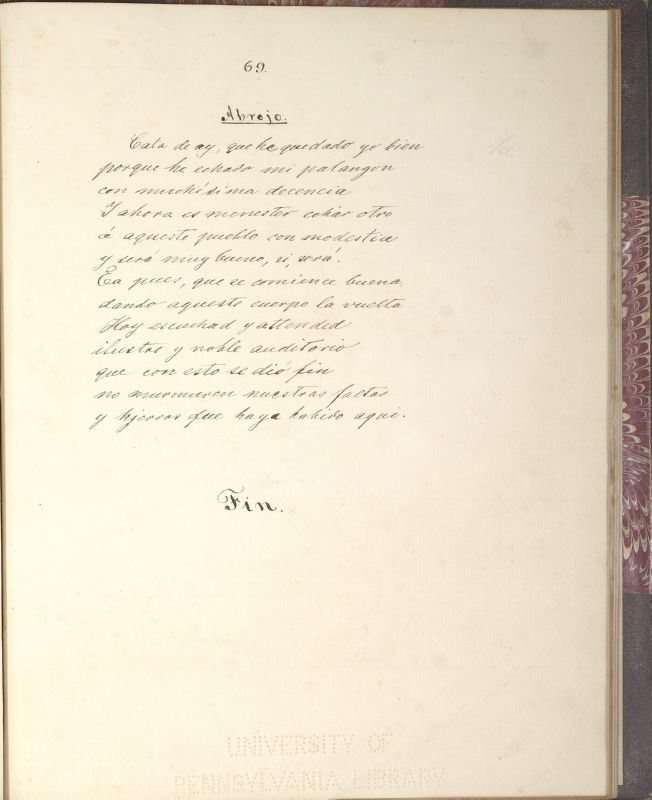 69.
Abrojo.
Cata de ay, que he quedado yo bien
he
porque he echado mi palangon
con muchísima decencia
Y ahora es menester echar otro
á aqueste pueblo con modestia
y será muy bueno, si, será.
Ea pues, que se comience buena
dando aqueste cuerpo la vuelta
Hoy escuchad y attended
ilustre y noble auditorio
que con esto se dió fin
no murmuren nuestras faltas
y hjerros que haya habido aqui.
Fin.
UNIVERSITY OF
PENNSYLVANIA LIBRARY